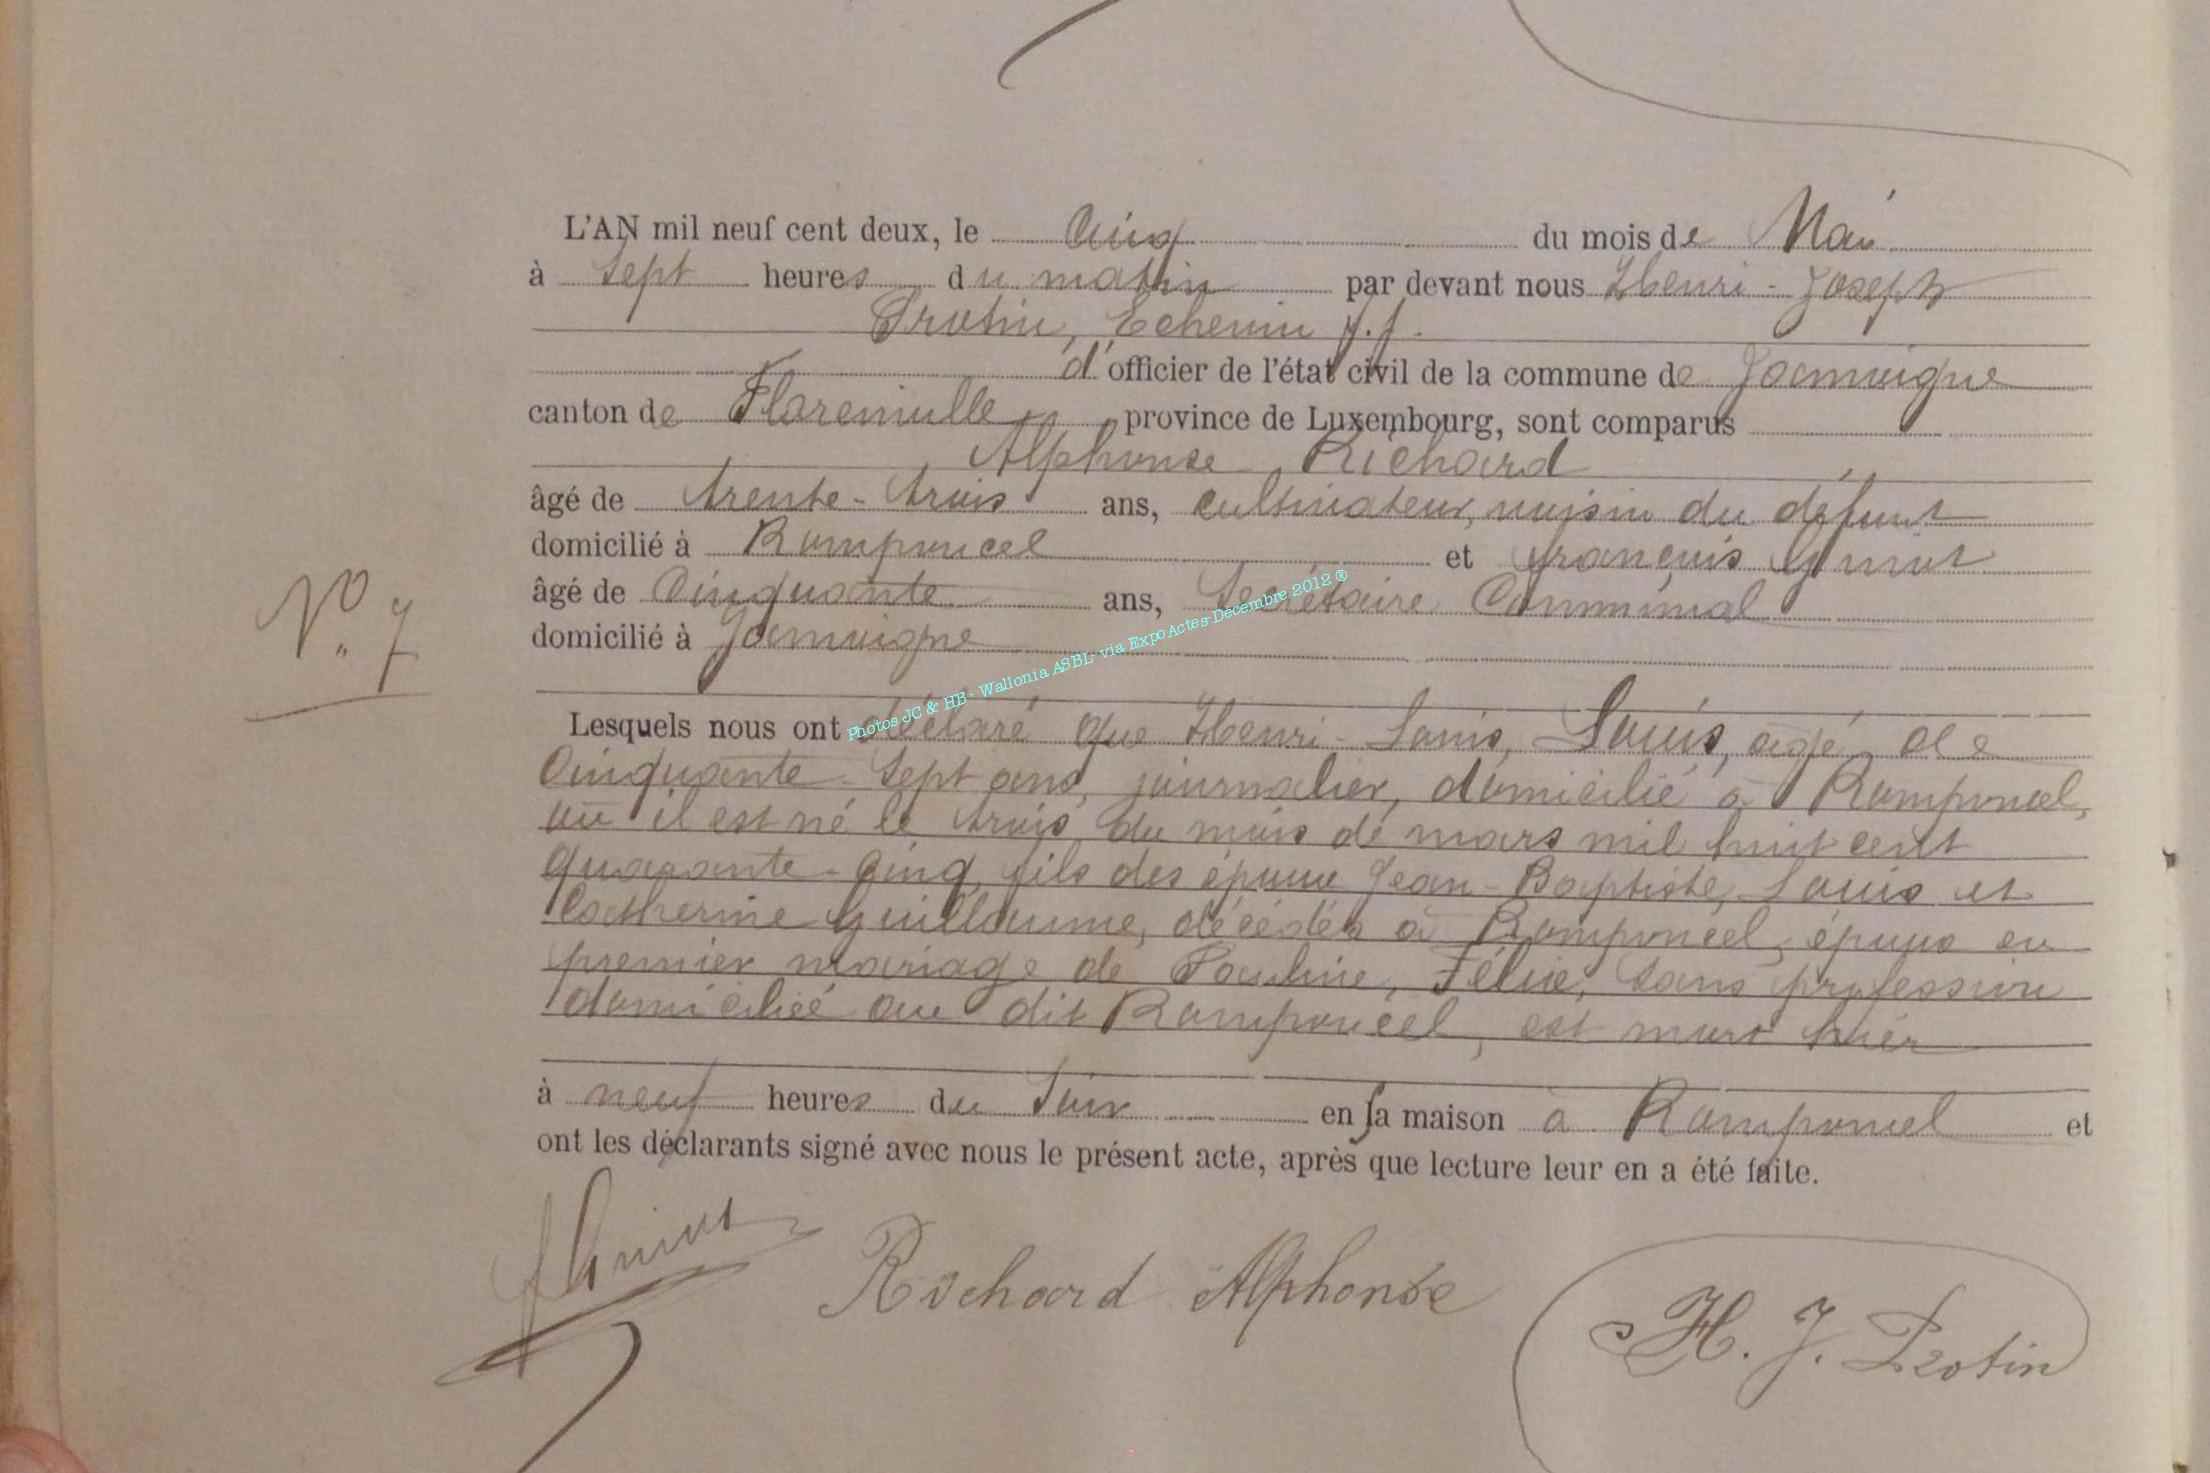 L'AN mil neuf cent deux, le Cinq du mois de Mai
à Sept heures du matin par devant nous Henri - Joseph
Protin, Echevin f.f.
d'officier de l'état civil de la commune de Jamoigne
canton de Florenville province de Luxembourg, sont comparus
Alphonse Richard
âgé de trente - trois ans, cultivateur, voisin du défunt
domicilié à Romponcel et François
âgé de Cinquante ans, Secrétaire Communal
domicilié à Jamoigne
N° 7
Photos JC & HB - Wallonia ASBL- via ExpoActes-Decembre 2012 ®
Lesquels nous ont déclaré que Henri - Louis, Louis, agé de
Cinquante - Sept ans, journalier, domicilié à Romponcel,
où il est né le trois du mois de mars mil huit cent
quarante - cinq, fils des époux Jean - Baptiste, Louis et
Catherine Guillaume, décédés à Romponcel, époux en
premier mariage de Pauline, Félix, sans profession
domiciliée au dit Romponcel, est mort hier
à neuf heures du Soir en sa maison à Romponcel et
ont les déclarants signé avec nous le présent acte, après que lecture leur en a été faite.
Richard Alphonse
H. J. Protin